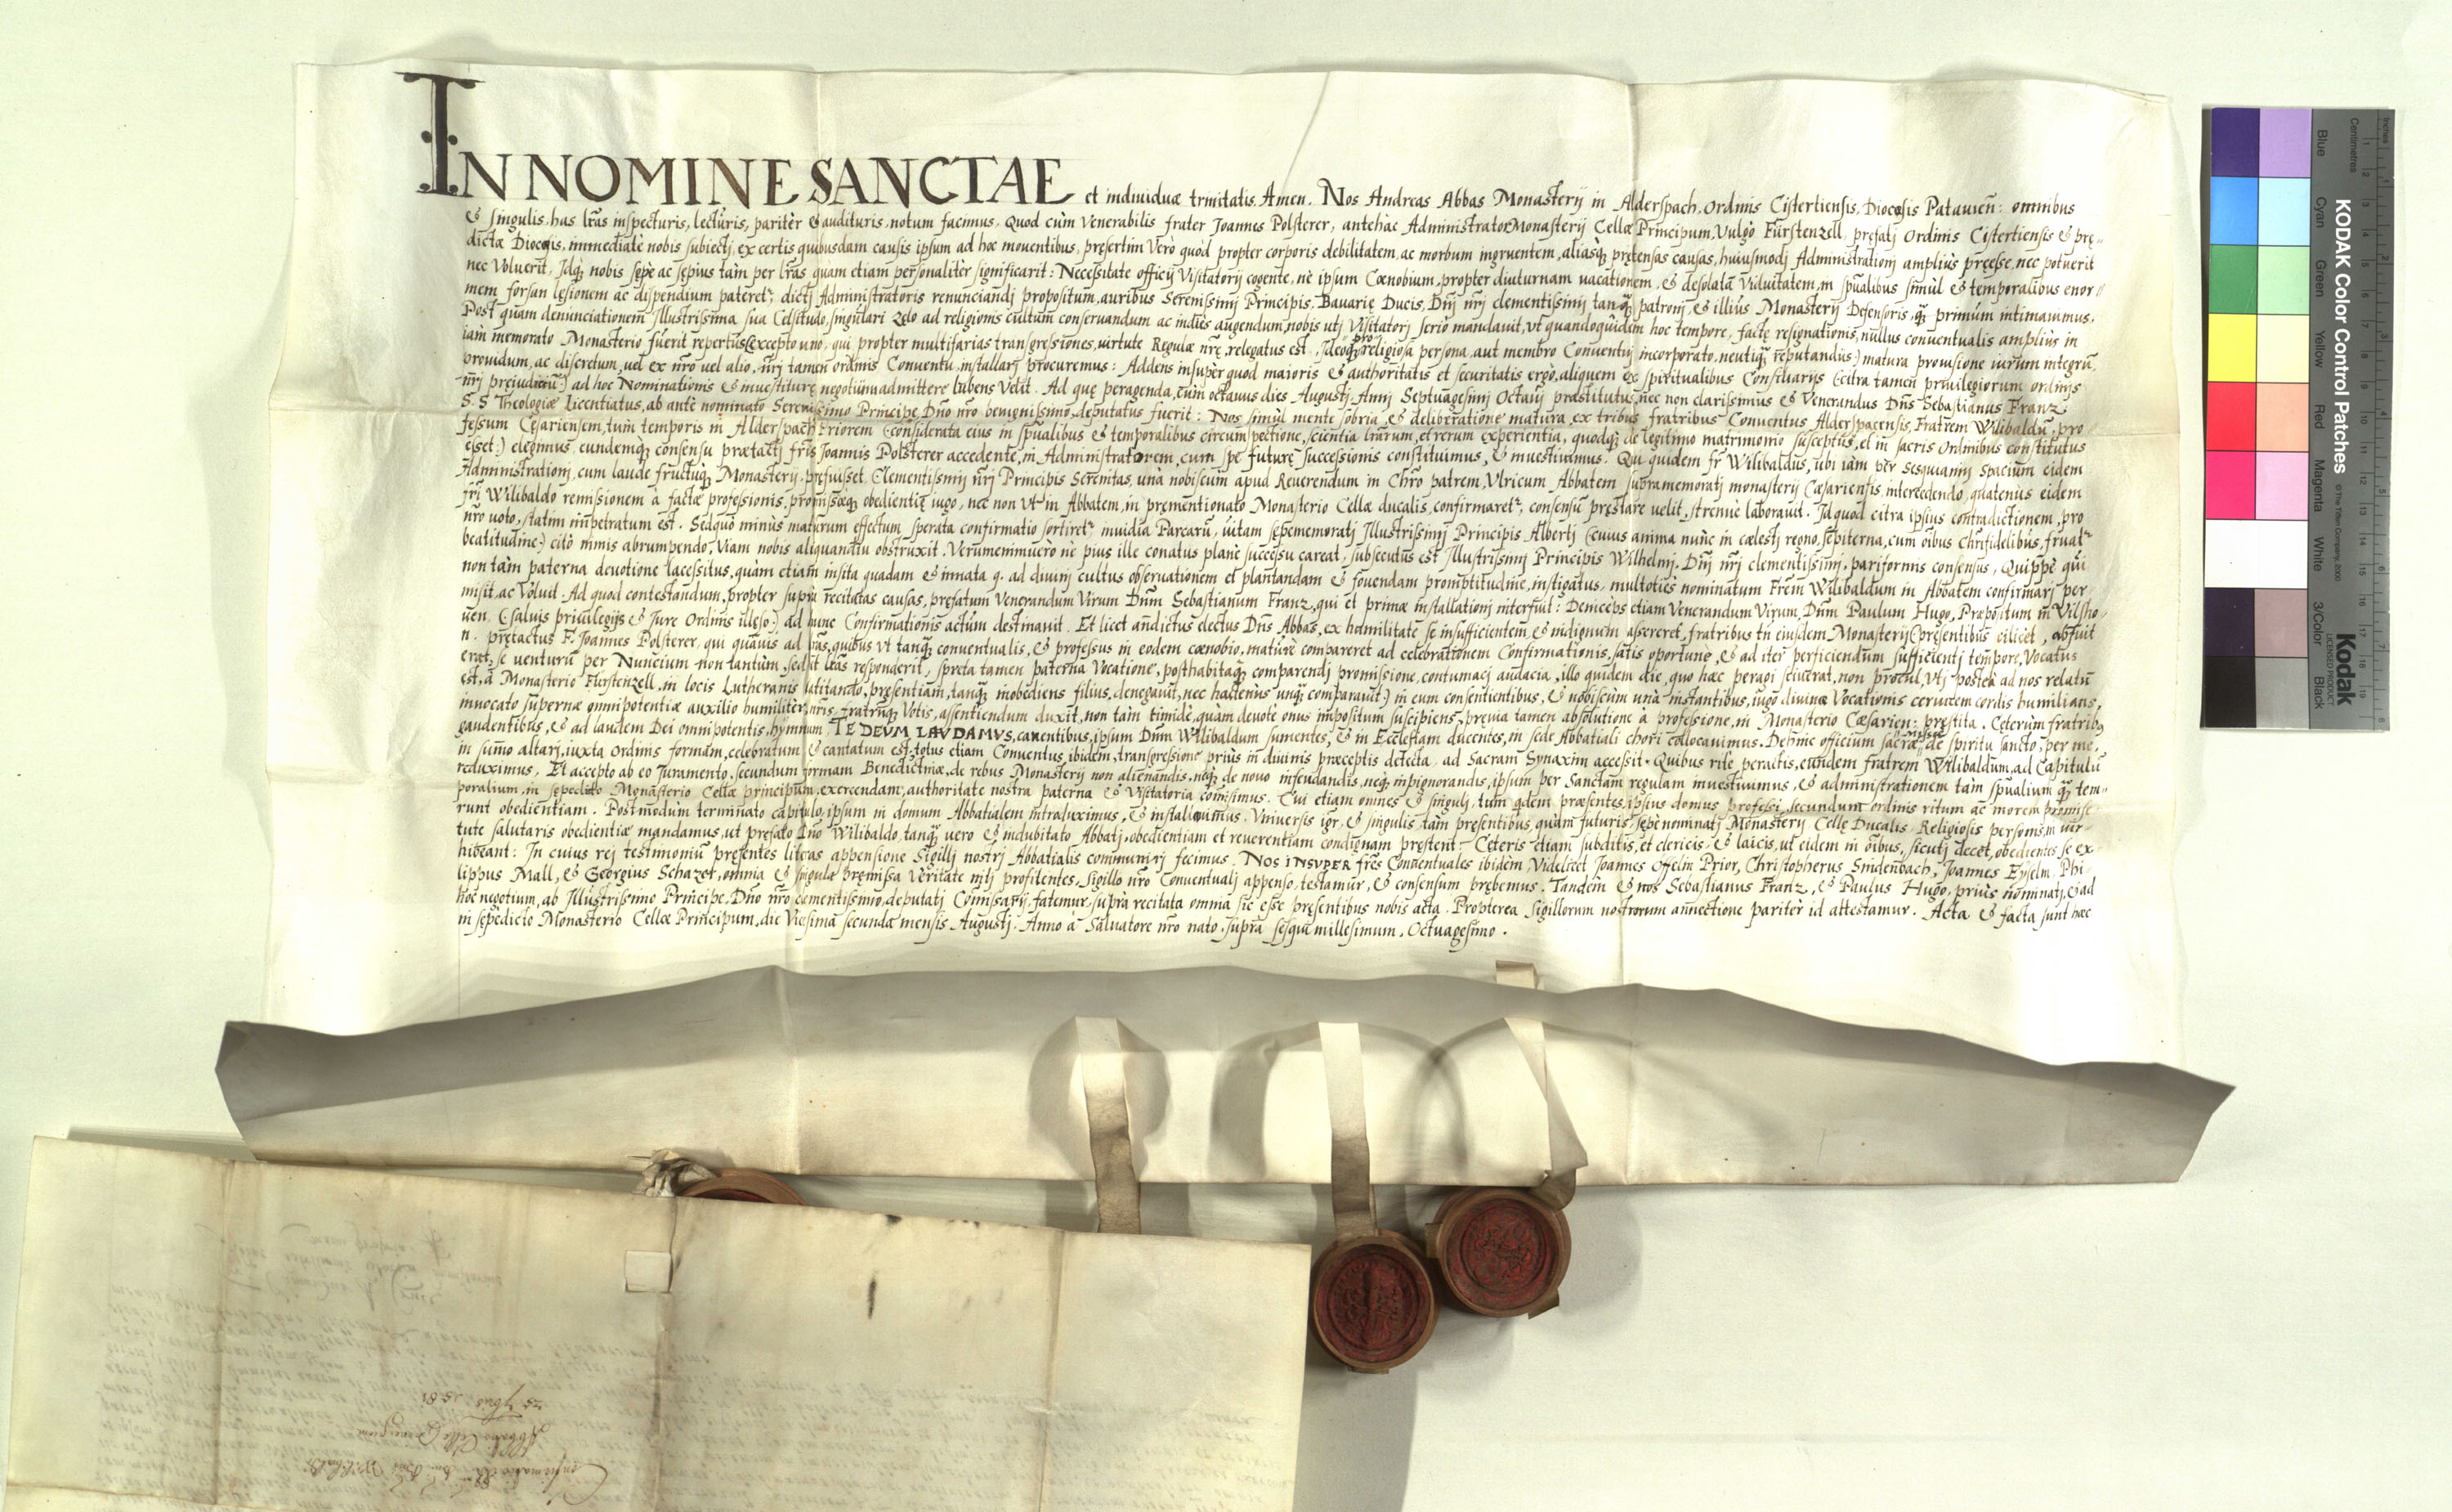 IN NOMINE SANCTAE et indiuiduæ trinitatis, Amen. Nos Andreas Abbas Monasterij in Alderspach, Ordinis Cistertiensis, Diocæsis Patauien: omnibus
& singulis, has lr̃as inspecturis, lecturis, paritèr & audituris, notum facimus. Quod cùm Venerabilis frater Joannes Polsterer, antehàc Administrator Monasterij Cellæ Principum, Vulgo Fürstenzell, præfatj Ordinis Cistertiensis & prę-
dictæ Diocæsis, immediatè nobis subiectj, ex certis quibusdam causis ipsum ad hoc mouentibus, presertim Verò quòd propter corporis debilitatem, ac morbum ingruentem, aliasq; prętensas causas, huiusmodj Administrationj amplius pręesse, nec potuerit
nec Voluerit, Jdq; nobis sępè ac sępius tàm per lr̃as quam etiam personalitèr significarit: Necessitate officij Visitatorij cogente, nè ipsum Cœnobium, propter diuturnam uacationem, & desolatã Viduitatem, in spũalibus simùl & temporalibus enor-
mem forsan lęsionem ac dispendium pateret²; dictj Administratoris renunciandj propositum, auribus Serenissimj Principis, Bauarię Ducis, Dñj nr̃j clementissimj tanq̃; patronj, & illius Monasterij Defensoris, q̃; primùm intimauimus.
Post quam denunciationem Jllustrissima sua Celsitudo, singularj zelo ad religionis cultum conseruandum ac indiès augendum, nobis utj Visitatorj seriò mandauit, vt quandoquidem hoc tempore, factę resignationis, nullus conuentualis amplius in
iam memorato Monasterio fuerit repertus (excepto uno, qui propter multifarias transgressiones, uirtute Regulæ nr̃ę, relegatus est, Jdeoq; pro religiosa persona, aut membro Conuentuj incorporato, neutiq̃; reputandus:) matura prouisione uirum integrũ,
prouidum, ac discretum, uel ex nr̃o uel alio, nr̃j tamen ordinis Conuentu, installarj procuremus: Addens insupèr quod maioris & authoritatis et securitatis ergò, aliquem ex spiritualibus Consiliarijs (citra tamen priuilegiorum ordinis
nr̃j pręiudiciũ:) ad hoc Nominationis & inuestiturę negotium admittere lubens Velit. Ad quę peragenda, cùm octauus dies Augustj, Annj Septuagesimj Octauj præstitutus, nec non clarissimus & Venerandus Dñs Sebastianus Franz
S. S. Theologiæ Licentiatus, ab antè nominato Serenissimo Principe, Dño nr̃o benignissimo, deputatus fuerit: Nos simùl mente sobria, & deliberatione matura, ex tribus fratribus Conuentus Alderspacensis, Fratrem Wilibaldũ, pro
fessum Cęsariensem, tùm temporis in Alderspach Priorem (considerata eius in spũalibus & temporalibus circumspectione, scientia lr̃arum, et rerum experientia, quodq; de legitimo matrimonio susceptus, et in sacris Ordinibus constitutus
esset:) elegimus, eundemq; consensu prætactj fr̃is Joannis Polsterer accedente, in Administratorem, cum spe futurę successionis constituimus, & inuestiuimus. Qui quidem fr̃ Wilibaldus, ubi iam pèr sesquiannj spacium eidem
Administrationj, cum laude fructuq; Monasterij, pręfuisset, Clementissimj nr̃j Principis Serenitas, unà nobiscum apud Reuerendum in Chr̃o patrem, Vlricum Abbatem supramemoratj monasterij Cæsariensis, intercedendo, quatenus eidem
fr̃j Wilibaldo remissionem à factæ professionis, promissæq; obedientię iugo, nec non vt in Abbatem, in prementionato Monasterio Cellæ ducalis, confirmaret², consensũ pręstare uelit, strenuè laborauit. Jd quod citra ipsius contradictionem, pro
nr̃o uoto, statim impetratum est. Sed quò minùs maturum effectum, sperata confirmatio sortiret², inuidia Parcarũ, uitam sępememoratj Jllustrissimj Principis Albertj (cuius anima nunc in cælestj regno, sępiterna, cum oĩbus Chrĩfidelibus, fruat²
beatitudine:) citò nimis abrumpendo, Viam nobis aliquandiu obstruxit. Verumenimuerò nè pius ille conatus planè successu careat, subsecutus est Jllustrissimj Principis Wilhelmj, Dñj nr̃j clementissimj, pariformis consensus, Quippè qui
non tàm paterna deuotione lacessitus, quàm etiam insita quadam & innata q. ad diuinj cultus obseruationem et plantandam & fouendam promptitudine, instigatus, multotiès nominatum Frẽm Wilibaldum in Abbatem confirmarj per
misit, ac Voluit. Ad quod contestandum, propter suprà recitatas causas, pręfatum Venerandum Virum Dñm Sebastianum Franz, qui et primæ installationj interfuit: Deinceps etiam Venerandum Virum, Dñm Paulum Hugo, Præpositum in Vilsho-
uen (saluis priuilegijs & Jure Ordinis illęso:) ad hunc Confirmationis actum destinauit. Et licet añdictus electus Dñs Abbas, ex humilitate se insufficientem, & indignum assereret, fratribus tñ eiusdem Monasterij (pręsentibus cilicet, abfuit
n. prętactus F. Joannes Polsterer, qui quãuis ad lr̃as, quibus vt tanq̃; conuentualis, & professus in eodem cœnobio, maturè compareret ad celebrationem Confirmationis, satis oportunè, & ad iter perficiendum sufficientj tempore, Vocatus
erat, se venturũ per Nuncium non tantùm, sed et lr̃as responderit, spreta tamen paterna Vocatione, posthabitaq; comparendj promissione, contumacj audacia, illo quidem die, quo hæc peragj sciuerat, non procul, vtj posteà ad nos relatũ
est, à Monasterio Fürstenzell, in locis Lutheranis latitando, pręsentiam, tanq̃; inobediens filius, denegauit, nec hactenus unq̃; comparauit:) in eum consentientibus, & nobiscùm unà instantibus, iugo diuinæ Vocationis ceruicem cordis humilians,
inuocato supernæ omnipotentiæ auxilio humilitèr, nr̃is, fratruq; Votis, assentiendum duxit, non tàm timidè, quàm deuotè onus impositum suscipiens, pręuia tamen absolutione à professione, in Monasterio Cæsarien: pręstita. Cęterùm fratribȝ
gaudentibus, & ad laudem Dei omnipotentis, hymnum, TE DEVM LAVDAMVS, canentibus, ipsum Dñm Wilibaldum sumentes, & in Ecclesiam ducentes, in sede Abbatiali chori collocauimus. Dehinc officium sacræ missæ de spiritu sancto, per me,
in sũmo altarj, iuxta Ordinis formam, celebratum & cantatum est, totus etiam Conuentus ibidem, transgressione priùs in diuinis præceptis detecta, ad Sacram Synaxim accessit. Quibus ritè peractis, eundem fratrem Wilibaldum, ad Capitulũ
reduximus. Et accepto ab eo Juramento, secundum formam Benedictinæ, de rebus Monasterij non alienandis, neq; de nouo infeudandis, neq; inpignorandis, ipsum per Sanctam regulam inuestiuimus, & administrationem tàm spũalium q̃; tem-
poralium, in sępedicto Monasterio Cellæ principum, exercendam, authoritate nostra paterna & Visitatoria com̃isimus. Cui etiam omnes & singulj, tum qdem præsentes, ipsius domus professj, secundum ordinis ritum ac morem promise-
runt obedientiam. Postmodùm terminato capitulo, ipsum in domum Abbatialem introduximus, & installauimus. Vniuersis igr̃, & singulis tàm pręsentibus, quàm futuris, sępè nominatj Monasterij Cellę Ducalis, Religiosis personis, in uir-
tute salutaris obedientiæ mandamus, ut pręfato Dño Wilibaldo, tanq̃; uero & indubitato Abbatj, obedientiam et reuerentiam condignam pręstent. Ceteris etiam subditis, et clericis, & laicis, ut eidem in oĩbus, sicutj decet, obedientes se ex-
hibeant: Jn cuius rej testimoniũ pręsentes literas appensione Sigillj nostrj Abbatialis communirj fecimus. NOS INSVPER fr̃es Conuentuales ibidèm, Videlicet Joannes Offelin Prior, Christopherus Snidenbach, Joannes Eyselin, Phi-
lippus Mall, & Georgius Schazet, omnia & singula pręmissa Veritate nitj profitentes, Sigillo nr̃o Conuentualj appenso, testamur, & consensum prębemus. Tandèm & nos Sebastianus Franz, & Paulus Hugo, priùs nominatj, & ad
hoc negotium, ab Jllustrissimo Principe, Dño nr̃o clementissimo, deputatj Com̃issarij, fatemur, suprà recitata omnia sic esse pręsentibus nobis acta. Propterea Sigillorum nostrorum annectione paritèr id attestamur. Acta & facta sunt hæc
in sępedicto Monasterio Cellæ Principum, die Vicesima secunda mensis Augustj. Anno à Saluatore nr̃o nato, suprà sesqui millesimum, Octuagesimo.
KODAK Color Control Patches
© The Tiffen Company, 2000
Kodak
LICENSED PRODUCT
Inches
Centimetres
Blue
Cyan
Green
Yellow
Red
Magenta
White
3/Color
Black